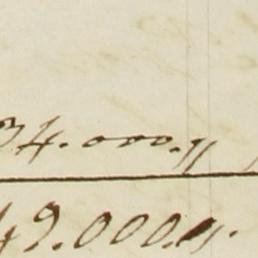 34.000.,,
49.000.,,.